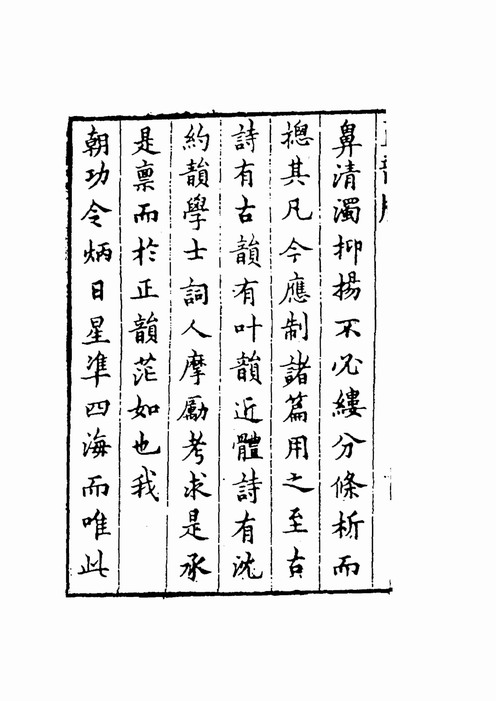 鼻清濁抑揚不必縷分條析而
摠其凡今應制諸篇用之至古
詩有古韻有叶韻近體詩有沈
約韻學士詞人摩勵考求是承
是禀而於正韻茫如也我
朝功令炳日星準四海而唯此